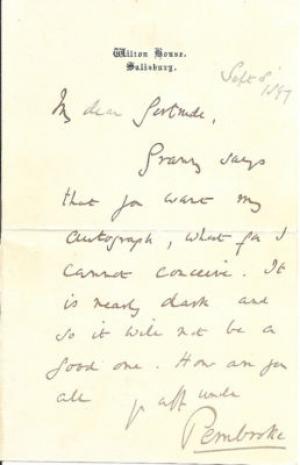 Wilton House.
Salisbury.
Sept 8
1897
My dear Gertrude,
Granny says
that you want my
autograph, what for I
cannot conceive. It
is nearly dark and
so it will not be a
good one. How are you
all yr aff uncle
Pembroke